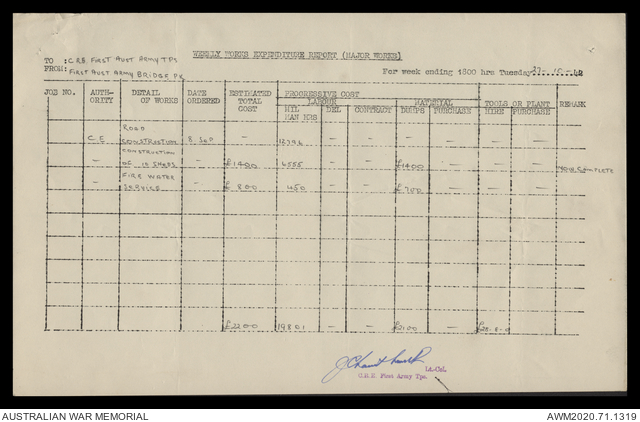 WEEKLY WORKS EXPENDITURE REPORT (MAJOR WORKS)
TO : C.R.E. FIRST AUST ARMY TPS
FROM: FIRST AUST ARMY BRIDGE PK
For week ending 1800 hrs Tuesday 27-10-42
JOB NO. AUTH-ORITY DETAIL OF WORKS DATE ORDERED ESTIMATED TOTAL COST PROGRESSIVE COST REMARK
LABOUR MATERIAL TOOLS OR PLANT
MIL MAN HRS DEL CONTRACT DUMPS PURCHASE HIRE PURCHASE
C.E ROAD CONSTRUCTION 8 SEP - - - - - -
- CONSTRUCTION OF 14 SHEDS - £1400 4555 - - £1400 - - NOW COMPLETE
- FIRE WATER SERVICE - £800 450 - - £700 - -
£2200 19801 - - £2100 - 
Lt-Col.
C.R.E. First Army Tps.
AUSTRALIAN WAR MEMORIAL
AWM2020.71.1319